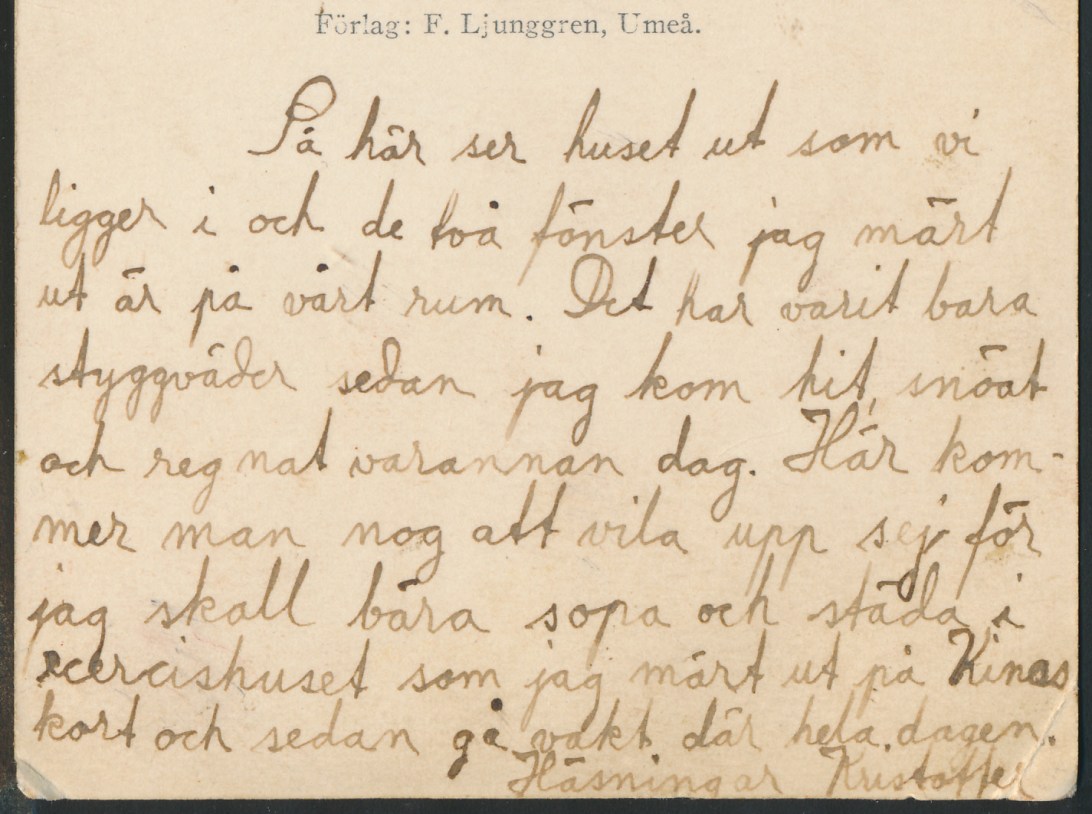 Förlag: F. Ljunggren, Umeå.
Så här ser huset ut som vi
ligger i och de två fönster jag märt
ut är på vårt rum. Det har varit bara
styggväder sedan jag kom hit, snöat
och regnat varannan dag. Här kom-
mer man nog att vila upp sej för
jag skall bära sopa och städa i
xercishuset som jag märt ut på Kinas
kort och sedan gå vakt där hela dagen.
Häsningar Kristoffer